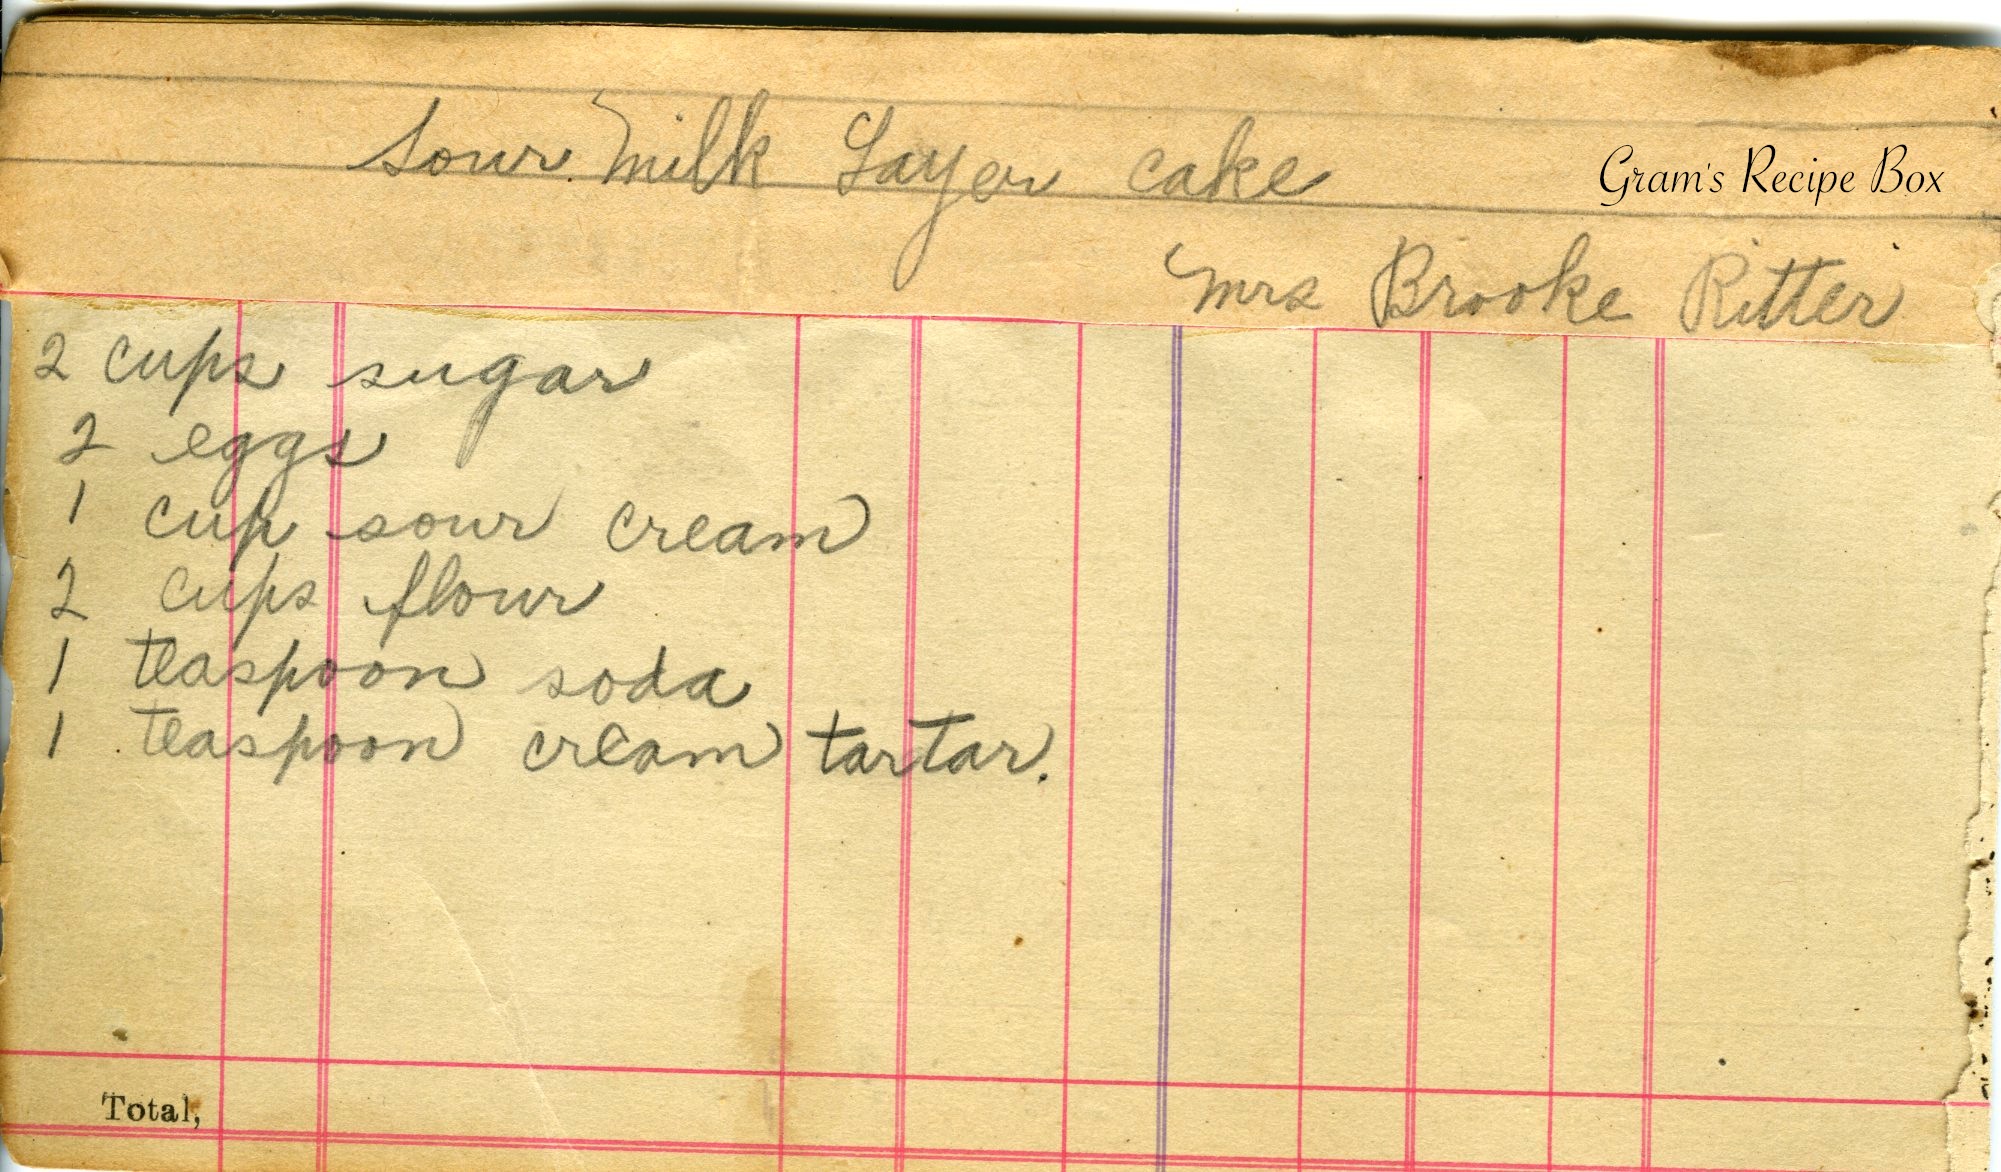 Sour Milk Layer cake
Gram's Recipe Box
Mrs Brooke Ritter
2 cups sugar
2 eggs
1 cup sour cream
2 cups flour
1 teaspoon soda
1 teaspoon cream tartar.
Total,